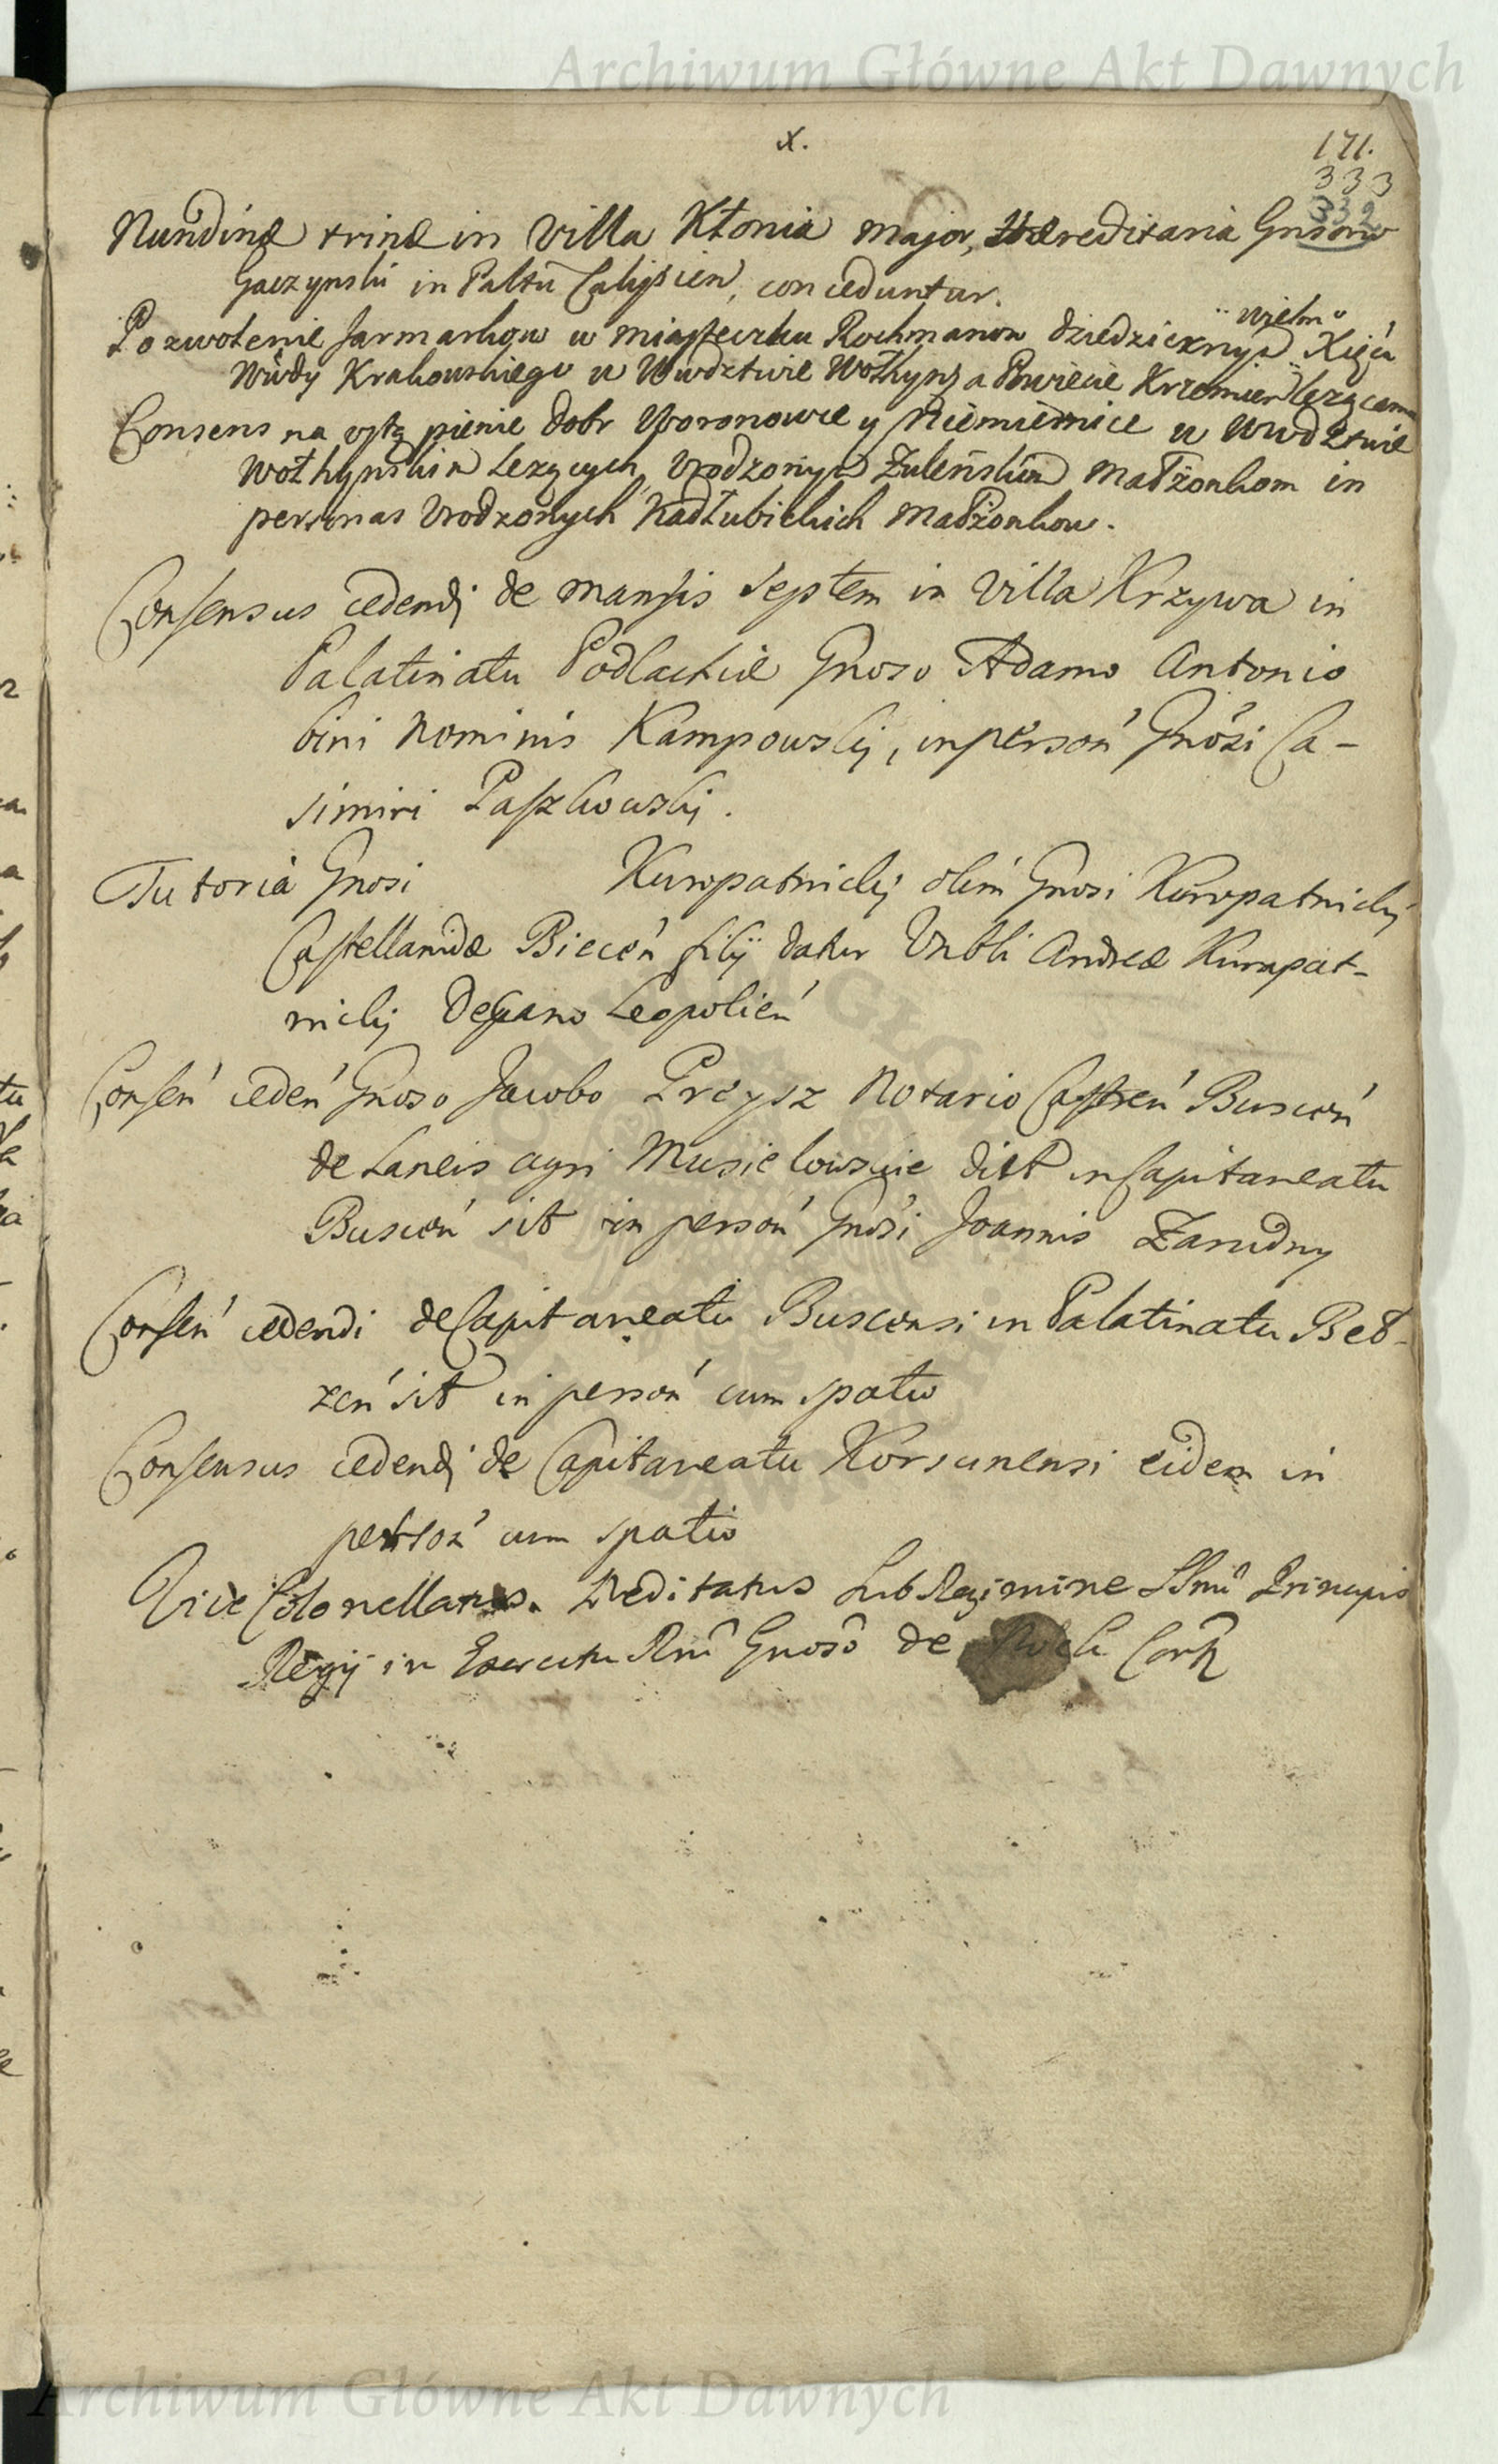 Archiwum Główne Akt Dawnych
x.
171.
333
332
Nundinæ trinæ in Villa Kłonia major, Hæreditaria Gnsorū
Gaczynski in Paltū Calisien, conceduntur.
Pozwolenie Jarmarkow w miasteczku Rochmanow dziedzicznyā Wielmo Xięcia
Wdy Krakowskiego w Wwdztwie Wołhynsā Powiecie Krzemien lezącemu
Consens na ustąpienie dobr Woronowce y Niemiernice w Wwdztwie
Wołhynskim Lezących, Urodzonym Zulenskim Małżonkom in
personas Urodzonych Kadłubickich Małżonkow.
Consensus cedendj de Mansis Septem in Villa Krzywa in
Palatinatu Podlachiæ Gnoso Adamo Antonio
bini Nominis Kampowskj, in person Gnosi Ca-
simiri Paszkowskj.
Tutoria Gnosi Kuropatnickj olim Gnosi Kuropatnickj
Castellanidæ Biecen filij datur Vrbli Andreæ Kuropat-
nickj Decano Leopolien
Consen ceden Gnoso Jacobo Preysz Notario Castren Buscen
de Laneis agri Musielowskie dict in Capitaneatu
Buscen sit in person Gnosi Joannis Zarudny
Consen cedendi de Capitaneatu Buscensi in Palatinatu Beł-
zen sit in person cum spatio
Consensus cedendj de Capitaneatu Korsunensi eidem in
person cum spatio
Vice Colonellatus. Meditatus Sub Regimine Ssmi Principis
Regij in Exercitu Rni Gnoso de Cork
Archiwum Główne Akt Dawnych